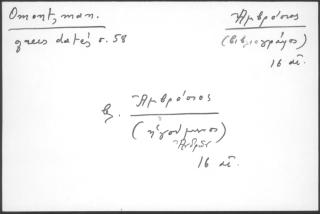 Omont, man.
grecs datés σ. 58
Ἀμβρόσιος
(βιβλιογράφος)
16 αἰ.
βλ. Ἀμβρόσιος
(ἡγούμενος)
Ἄνδρου
16 αἰ.